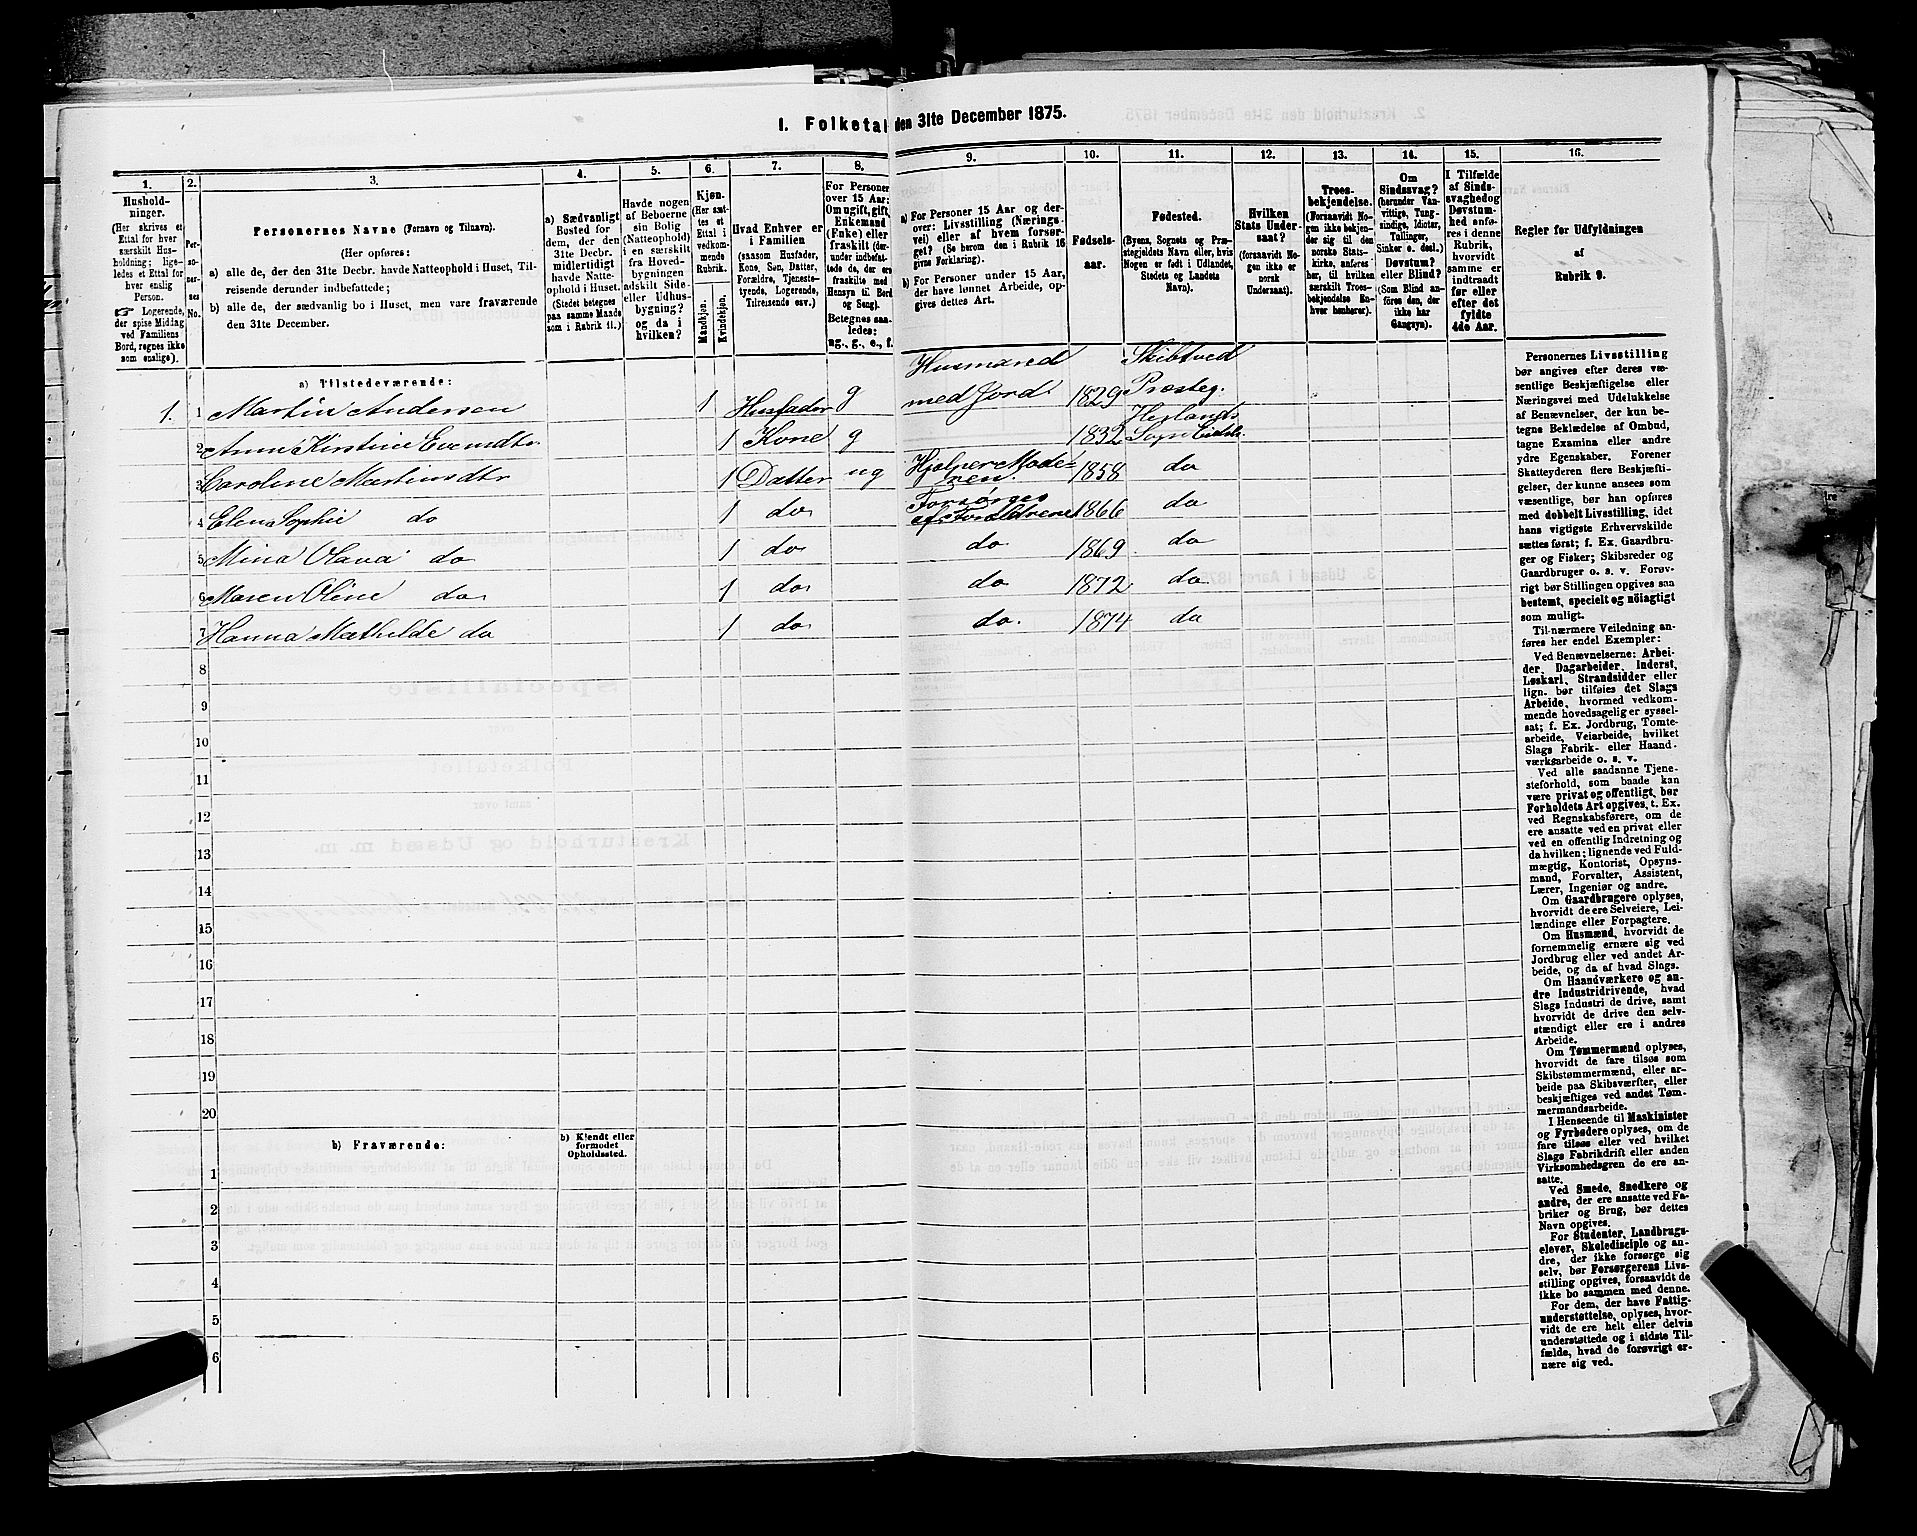 1. Folketal den 31te December 1875.
1. 2. 3. 4. 5. 6. 7. 8. 9. 10. 11. 12. 13. 14. 15. 16.
Hushold-
ninger.
(Her skrives et
Ettal for hver
særskilt Hus-
holdning; lige-
ledes et Ettal for
hver enslig
Person.
☞ Logerende,
der spise Middag
ved Familiens
Bord, regnes ikke
som enslige).
Per-
so-
ner-
nes
No.
Personernes Navne (Fornavn og Tilnavn).
(Her opføres:
a) alle de, der den 31te Decbr. havde Natteophold i Huset, Til-
reisende derunder indbefattede;
b) alle de, der sædvanlig bo i Huset, men vare fraværende
den 31te December.
a) Sædvanligt
Bosted for
dem, der den
31te Decbr.
midlertidigt
havde Natte-
ophold i Huset.
(Stedet betegnes
paa samme Maade
som i Rubrik 11.)
Havde nogen
af Beboerne
sin Bolig
(Natteophold)
i en særskilt
fra Hoved-
bygningen
adskilt Side-
eller Udhus-
bygning?
og da i
hvilken?
Kjøn.
(Her sæt-
tes et
Ettal i
vedkom-
mende
Rubrik.
Mandkjøn.
Kvindekjøn.
Hvad Enhver er
i Familien
(saasom Husfader,
Kone, Søn, Datter,
Forældre, Tjeneste-
tyende, Logerende,
Tilreisende osv.)
For Personer
over 15 Aar:
Om ugift, gift,
Enkemand
(Enke) eller
fraskilt (der-
under indbefat-
tede de, der ere
fraskilte med
Hensyn til Bord
og Seng).
Betegnes saa-
ledes:
ug., g., e., f.
a) For Personer 15 Aar og der-
over: Livsstilling (Nærings-
vei) eller af hvem forsør-
get? (Se herom den i Rubrik 16
givne Forklaring).
b) For Personer under 15 Aar,
der have lønnet Arbeide, op-
gives dettes Art.
Fødsels-
aar.
Fødested.
(Byens, Sognets og Præ-
stegjeldets Navn eller, hvis
Nogen er født i Udlandet,
Stedets og Landets
Navn).
Hvilken
Stats Under-
saat?
(forsaavidt No-
gen ikke er
norsk
Undersaat).
Troes-
bekjendelse.
(Forsaavidt No-
gen ikke bekjen-
der sig til den
norske Stats-
kirke, anføres
her, til hvilken
særskilt Troes-
bekjendelse En-
hver henhører).
Om
Sindssvag?
(herunder Van-
vittige, Tung-
sindige, Idioter,
Tullinger,
Sinker o. desl.)
Døvstum?
eller Blind?
(Som Blind an-
føres den, der
ikke har
Gangsyn).
I Tilfælde
af Sinds-
svaghed og
Døvstum-
hed anfø-
res i denne
Rubrik,
hvorvidt
samme er
indtraadt
før eller
efter det
fyldte
4de Aar.
Regler for Udfyldningen
af
Rubrik 9.
a) Tilstedeværende:
1. 1 Martin Andersen 1 Husfader g Husmand med Jord 1829 Skibtved Præsteg.
2 Anne Kirstine Evendtr 1 Kone g 1832 Sogn
3 Caroline Martinsdtr 1 Datter ug Hjelper Mode-
ren. 1858 do
4 Elen Sophie do 1 do Forsørges
af Forældrene 1866 do
5 Mina Olava do 1 do do 1869 do
6 Maren Oline do 1 do do 1872 do
7 Hanna Mathilde do 1 do do. 1874 do
8
9
10
11
12
13
14
15
16
17
18
19
20
b) Fraværende:
b) Kjendt eller
formodet
Opholdssted.
1
2
3
4
5
6
Personernes Livsstilling
bør angives efter deres væ-
sentlige Beskjæftigelse eller
Næringsvei med Udelukkelse
af Benævnelser, der kun be-
tegne Beklædelse af Ombud,
tagne Examina eller andre
ydre Egenskaber. Forener
Skatteyderen flere Beskjæfti-
gelser, der kunne ansees som
væsentlige, bør han opføres
med dobbelt Livsstilling, idet
hans vigtigste Erhvervskilde
sættes først; f. Ex. Gaardbru-
ger og Fisker; Skibsreder og
Gaardbruger o. s. v. Forøv-
rigt bør Stillingen opgives saa
bestemt, specielt og nöiagtigt
som muligt.
Til nærmere Veiledning an-
føres her endel Exempler:
Ved Benævnelserne: Arbei-
der, Dagarbeider, Inderst,
Løskarl, Strandsidder eller
lign. bør tilføies det Slags
Arbeide, hvormed vedkom-
mende hovedsagelig er syssel-
sat; f. Ex. Jordbrug, Tomte-
arbeide, Veiarbeide, hvilket
Slags Fabrik- eller Haand-
værksarbeide o. s. v.
Ved alle saadanne Tjene-
steforhold, som baade kan
være privat og offentligt, bør
Forholdets Art opgives, t. Ex.
ved Regnskabsførere, om de
ere ansatte ved en privat eller
ved en offentlig Indretning og
da hvilken; lignende ved Fuld-
mægtig, Kontorist, Opsyns-
mand, Forvalter, Assistent,
Lærer, Ingeniør og andre.
Om Gaardbrugere oplyses,
hvorvidt de ere Selveiere, Lei-
lændinge eller Forpagtere.
Om Husmænd, hvorvidt de
fornemmelig ernære sig ved
Jordbrug eller ved andet Ar-
beide, og da af hvad Slags.
Om Haandværkere og an-
dre Industridrivende, hvad
Slags Industri de drive, samt
hvorvidt de drive den selv-
stændigt eller ere i andres
Arbeide.
Om Tømmermænd oplyses,
hvorvidt de fare tilsøs som
Skibstømmermænd, eller ar-
beide paa Skibsværfter, eller
beskjæftiges ved andet Tøm-
mermandsarbeide.
I Henseende til Maskinister
og Fyrbødere oplyses, om de
fare tilsøs eller ved hvilket
Slags Fabrikdrift eller anden
Virksomhedsgren de ere an-
satte.
Ved Smede, Snedkere og
andre, der ere ansatte ved Fa-
briker og Brug, bør dettes
Navn opgives.
For Studenter, Landbrugs-
elever, Skoledisciple og an-
dre, der ikke forsørge sig
selv, bør Forsørgerens Livs-
stilling opgives, forsaavidt de
ikke bo sammen med denne.
For dem, der have Fattig-
understøttelse, oplyses, hvor-
vidt de ere helt eller delvis
understøttede og i sidste Til-
fælde, hvad de forøvrigt er-
nære sig ved.